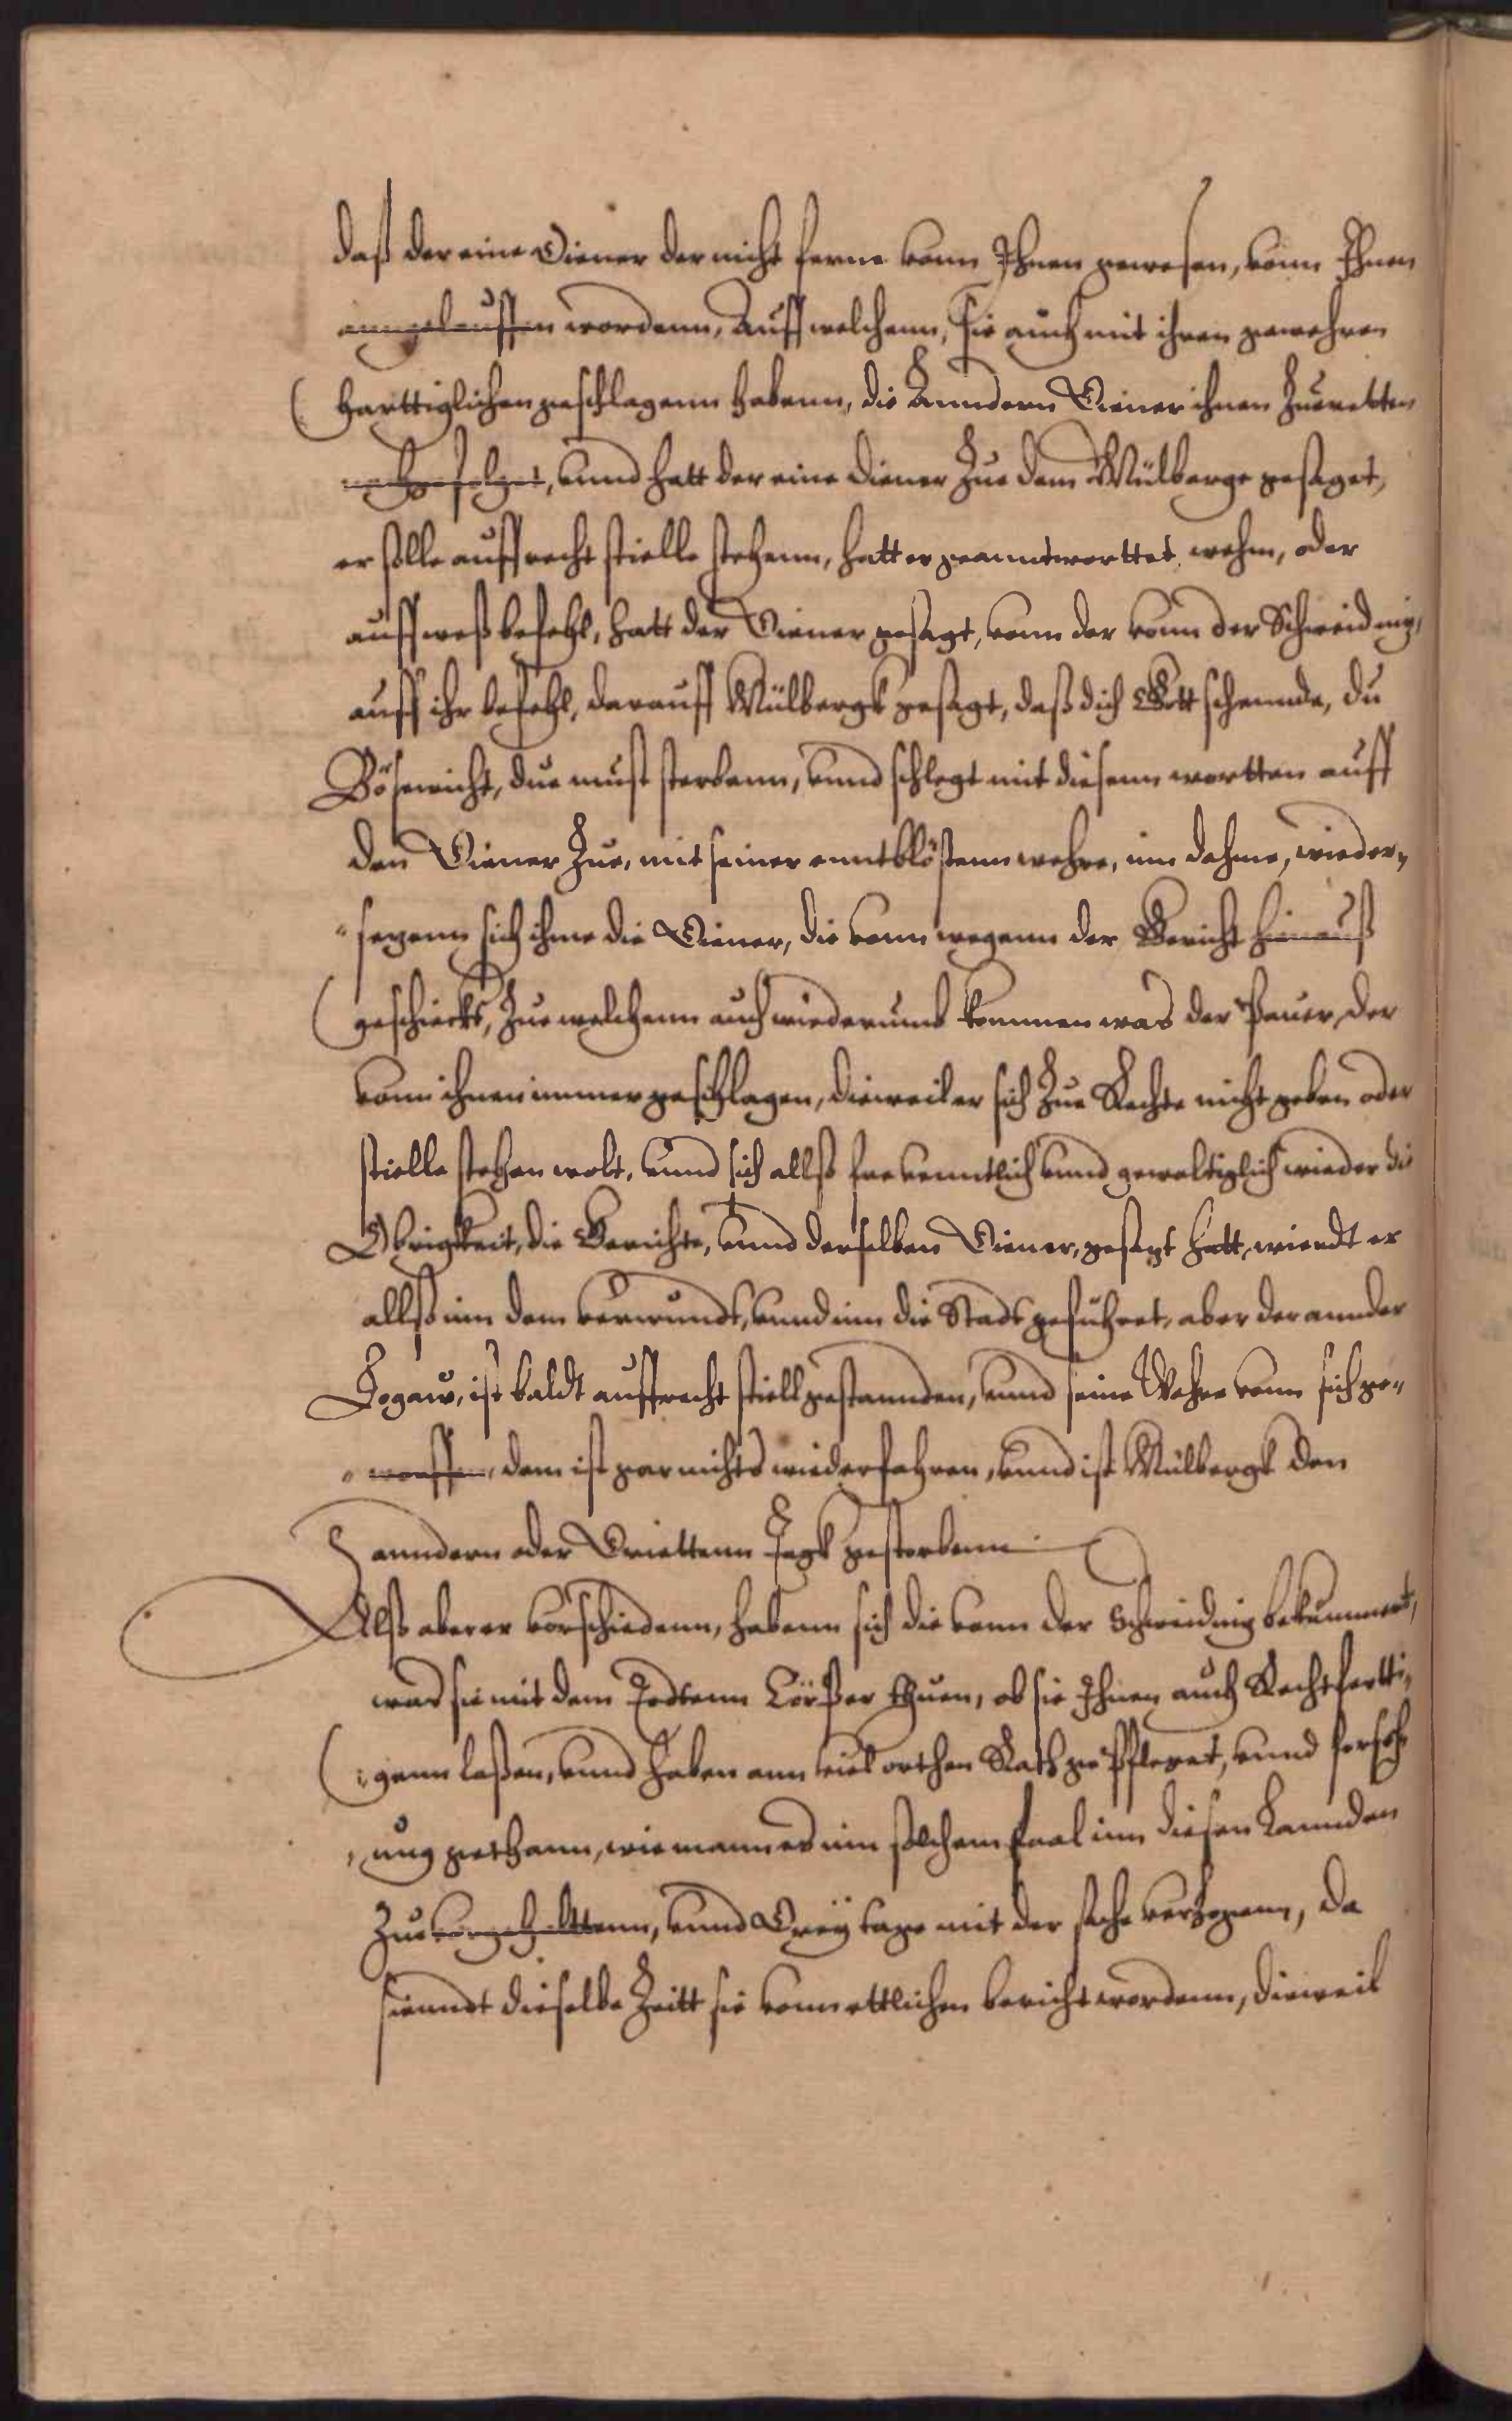 daß der eine Diener der nicht ferne vonn Ihnen gewesen, vonn Ihnen
anngelauffen wordenn, Auff welchenn, sie auch mit ihren gewehren
harttiglichen geschlagenn habenn, die Anndern Diener ihnen Zueretten
nachgefolget, unnd hatt der eine Diener Zue dem Mülberge gesaget,
er solle auffrecht stielle stehenn, hatt er geanntworttet, wehm, oder
auff weß befehl, hatt der Diener gesagt, vonn der vonn der Schweidnig,
auff ihr befehl, darauff Mülbergk gesagt, daß dich Gott schennde, du
Bösewicht, due must sterbenn, unnd schlegt mit diesenn wortten auff
den Diener Zue, mit seiner enntblöstenn wehre, inn dehme, wieder„
„sezenn sich ihme die Diener, die vonn wegenn der Gericht hinauß
geschieckt, Zue welchenn auch wiederumb kommen was der Pauer, der
vonn ihnen immer geschlagen, dieweil er sich Zue Rechte nicht geben oder
stielle stehen wolt, unnd sich allß freuenntlich unnd gewaltiglich wieder die
Obrigkeit, die Gerichte, unnd derselben Diener, gesezt hatt, wierdt er
allß inn dem verwundt, unnd inn die Stadt geführet, aber der annder
Logaw, ist baldt auffrecht stiell gestannden, unnd seine Wehre vonn sich ge„
„worffen, dem ist gar nichts wiederfahren, unnd ist Mülbergk den
anndern oder Driettenn Tagk gestorbenn
Alß aber er vorschiedenn, habenn sich die vonn der Schweidnig bekummert,
was sie mit dem Todtenn Cörper thuen, ob sie Ihnen auch Rechtfertti„
„genn laßen, unnd haben ann viel orthen Rath gepfleget, unnd forsch„
„ung gethann, wie mann es inn solchem faal inn diesen Lannden
Zue vorgehalttenn, unnd Dreÿ tage mit der sache verzogenn, da
sienndt dieselbe Zeitt sie vonn ettlichen bericht wordenn, dieweil